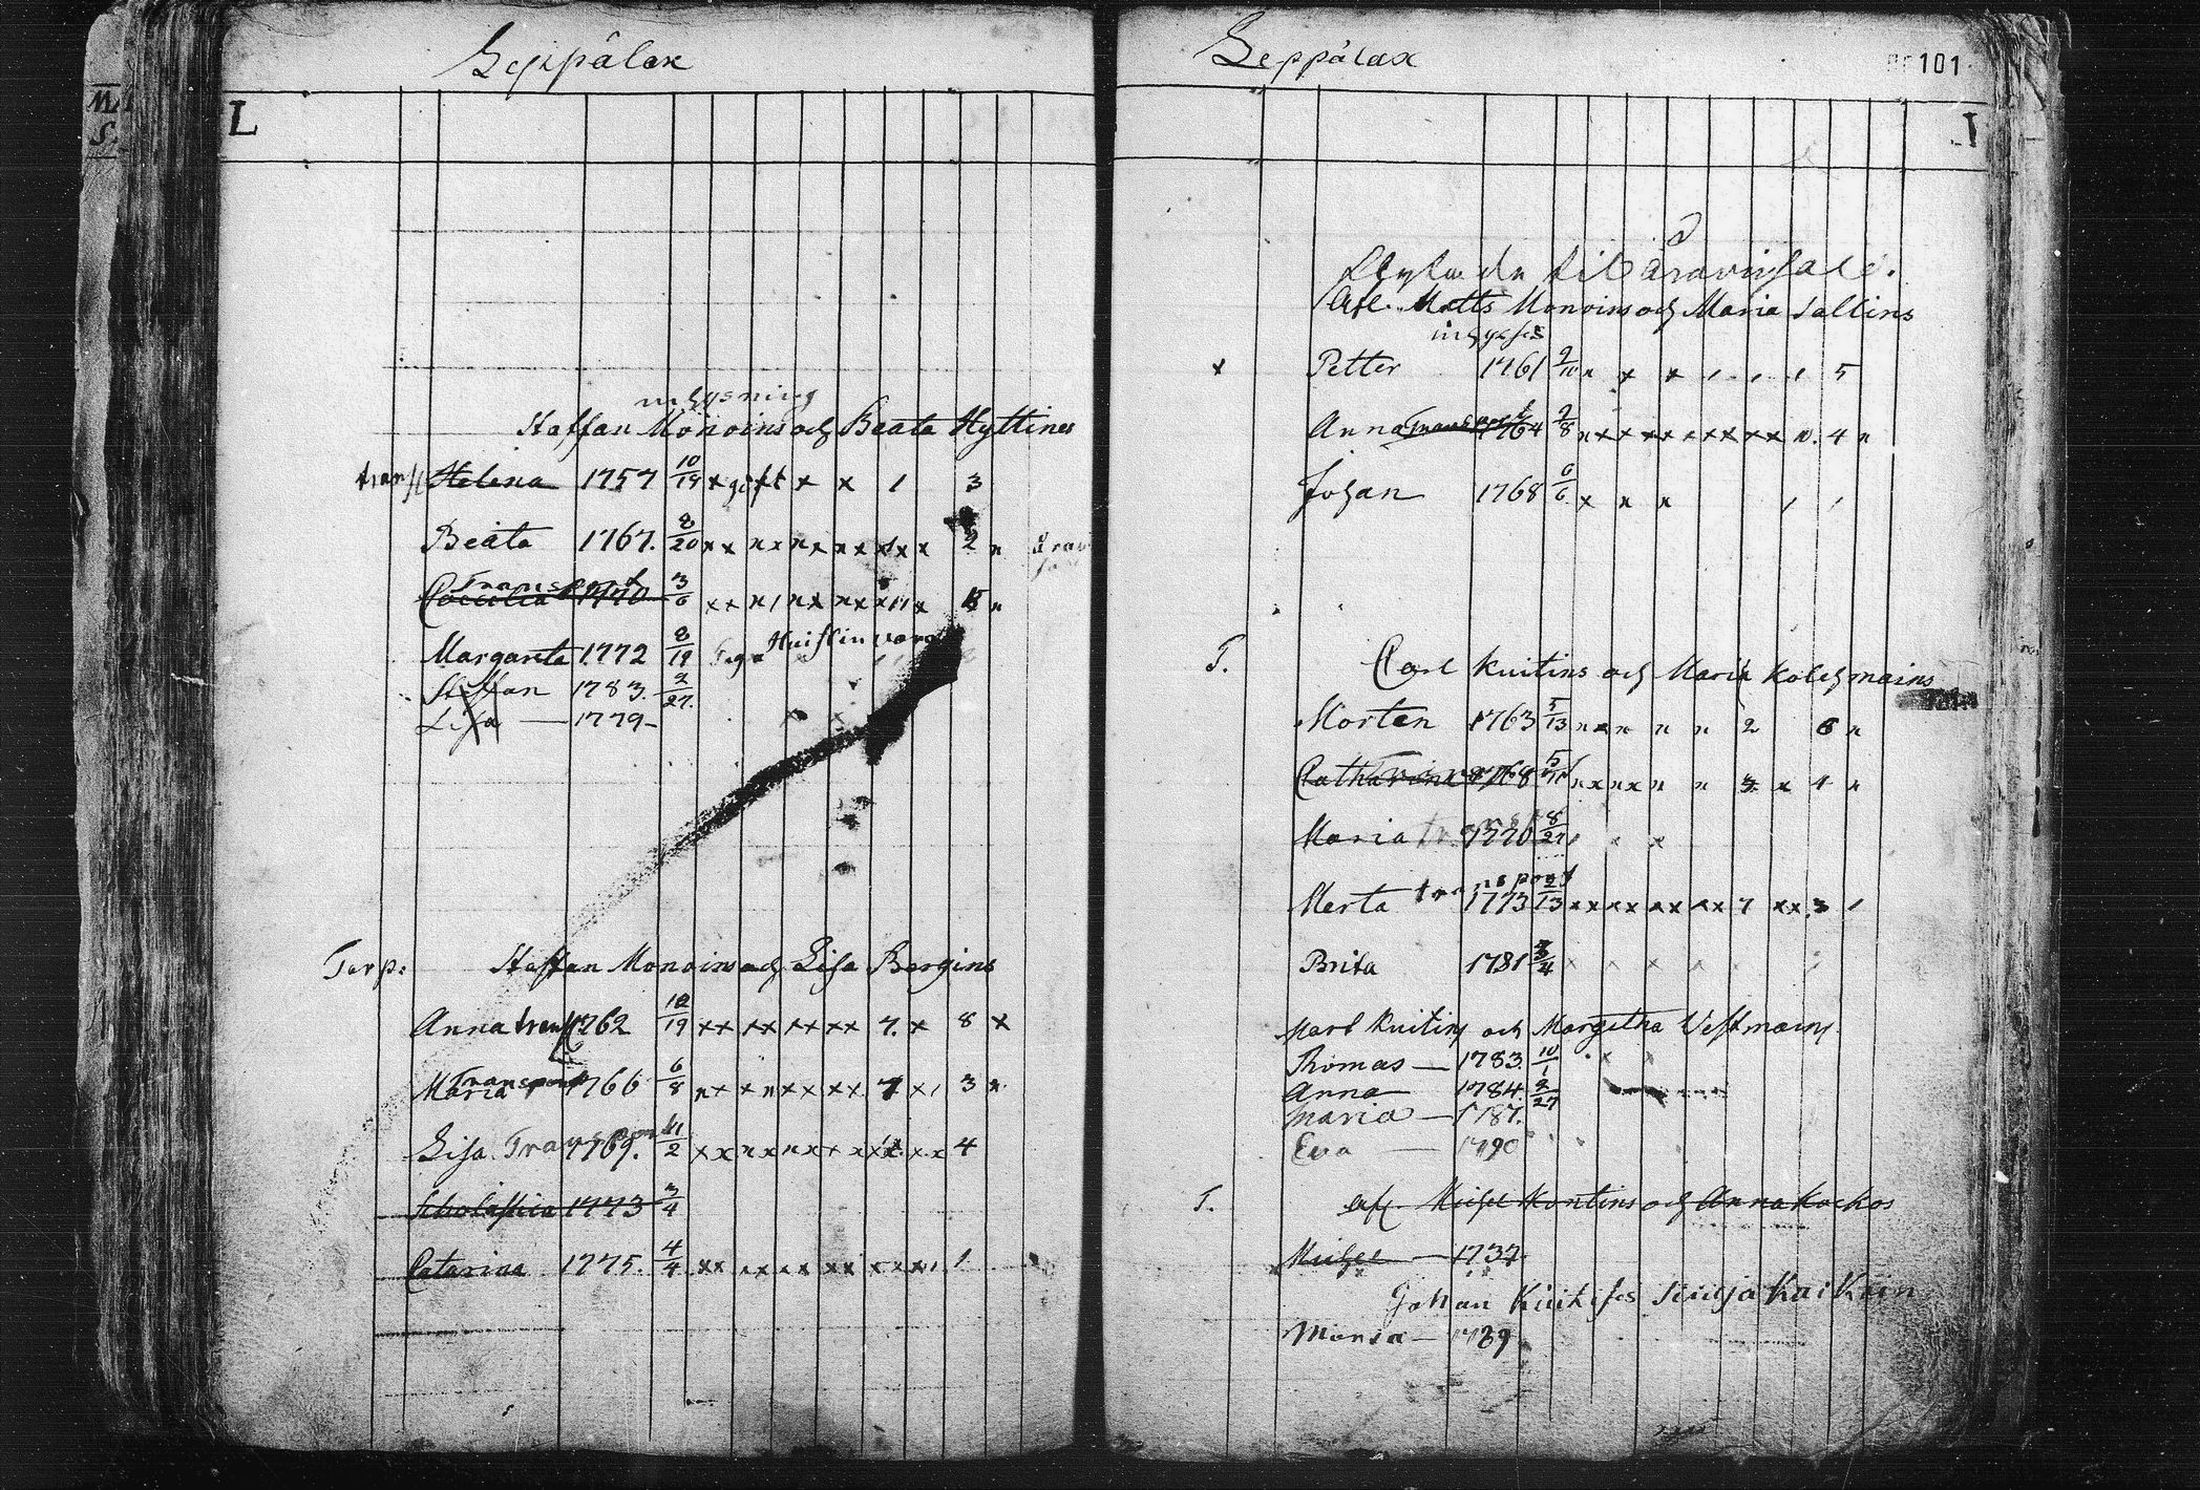 Seppälax
M.
S.
L
inhysning
Staffan Monoins och Beata Hyttines
transp Helena 1757 10/19 x gift x x 1 3
Beata 1767. 8/20 x x n x n x x x x x x 2 n
Transport
Cœcilia 1770 3/6 x x n 1 n x n x x 11 x 5 n
Margareta 1772 8/19 Huistinvara
Staffan 1783. 2/27.
Lisa — 1779 -
Torp: Staffan Monoins och Lisa Bergins
Anna transp 1762 12/19 x x x x x x x x 7. x 8 x
Transport
Maria 1766 6/8 n x x n x x x x 7 x 1 3 n
Lisa Transport 1769. 11/2 x x n x n x x x x x x x 4
Scholastica 1773 3/4
Catarina 1775. 4/4 x x x x x x x x x x x 1 1
Seppälax
101
afl. Matts Monoins och Maria Sallins
inhyses
x Petter 1761 2/10 n x x 1 1 1 5
Anna Transport 1764 2/8 n x x x x x x x x x x n. 4 n
Johan 1768 6/6 x n n 1 1
T. Carl Kuitins och Maria Kolehmains
Morten 1763 5/13 n x n n n 2 6 n
Catharina 1768 n x n x n n 3 x 4 n
Maria 1770 8/27 1 x x
transport
Merta 1773 2/13 x x x x x x x x 7 x x 3 1
Brita 1781 3/4 x x x x
Karl Kuitins och Margetha Vestmains
Thomas — 1783. 10/1
Anna 1784. 2/27
Maria — 1787.
Eva — 1790
T. afl. Michel Kontins och Anna Kockos
Michel — 1737.
Johan Kuitises Kaikain
Maria — 1789